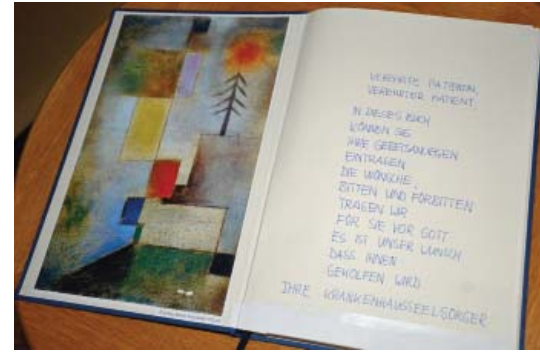 VEREHRTE PATIENTIN,
VEREHRTER PATIENT.
IN DIESES BUCH
KÖNNEN SIE
IHRE GEBETSANLIEGEN
EINTRAGEN
DIE WÜNSCHE,
BITTEN UND FÜRBITTEN
TRAGEN WIR
FÜR SIE VOR GOTT.
ES IST UNSER WUNSCH
DASS IHNEN
GEHOLFEN WIRD
IHRE KRANKENHAUSSEELSORGER